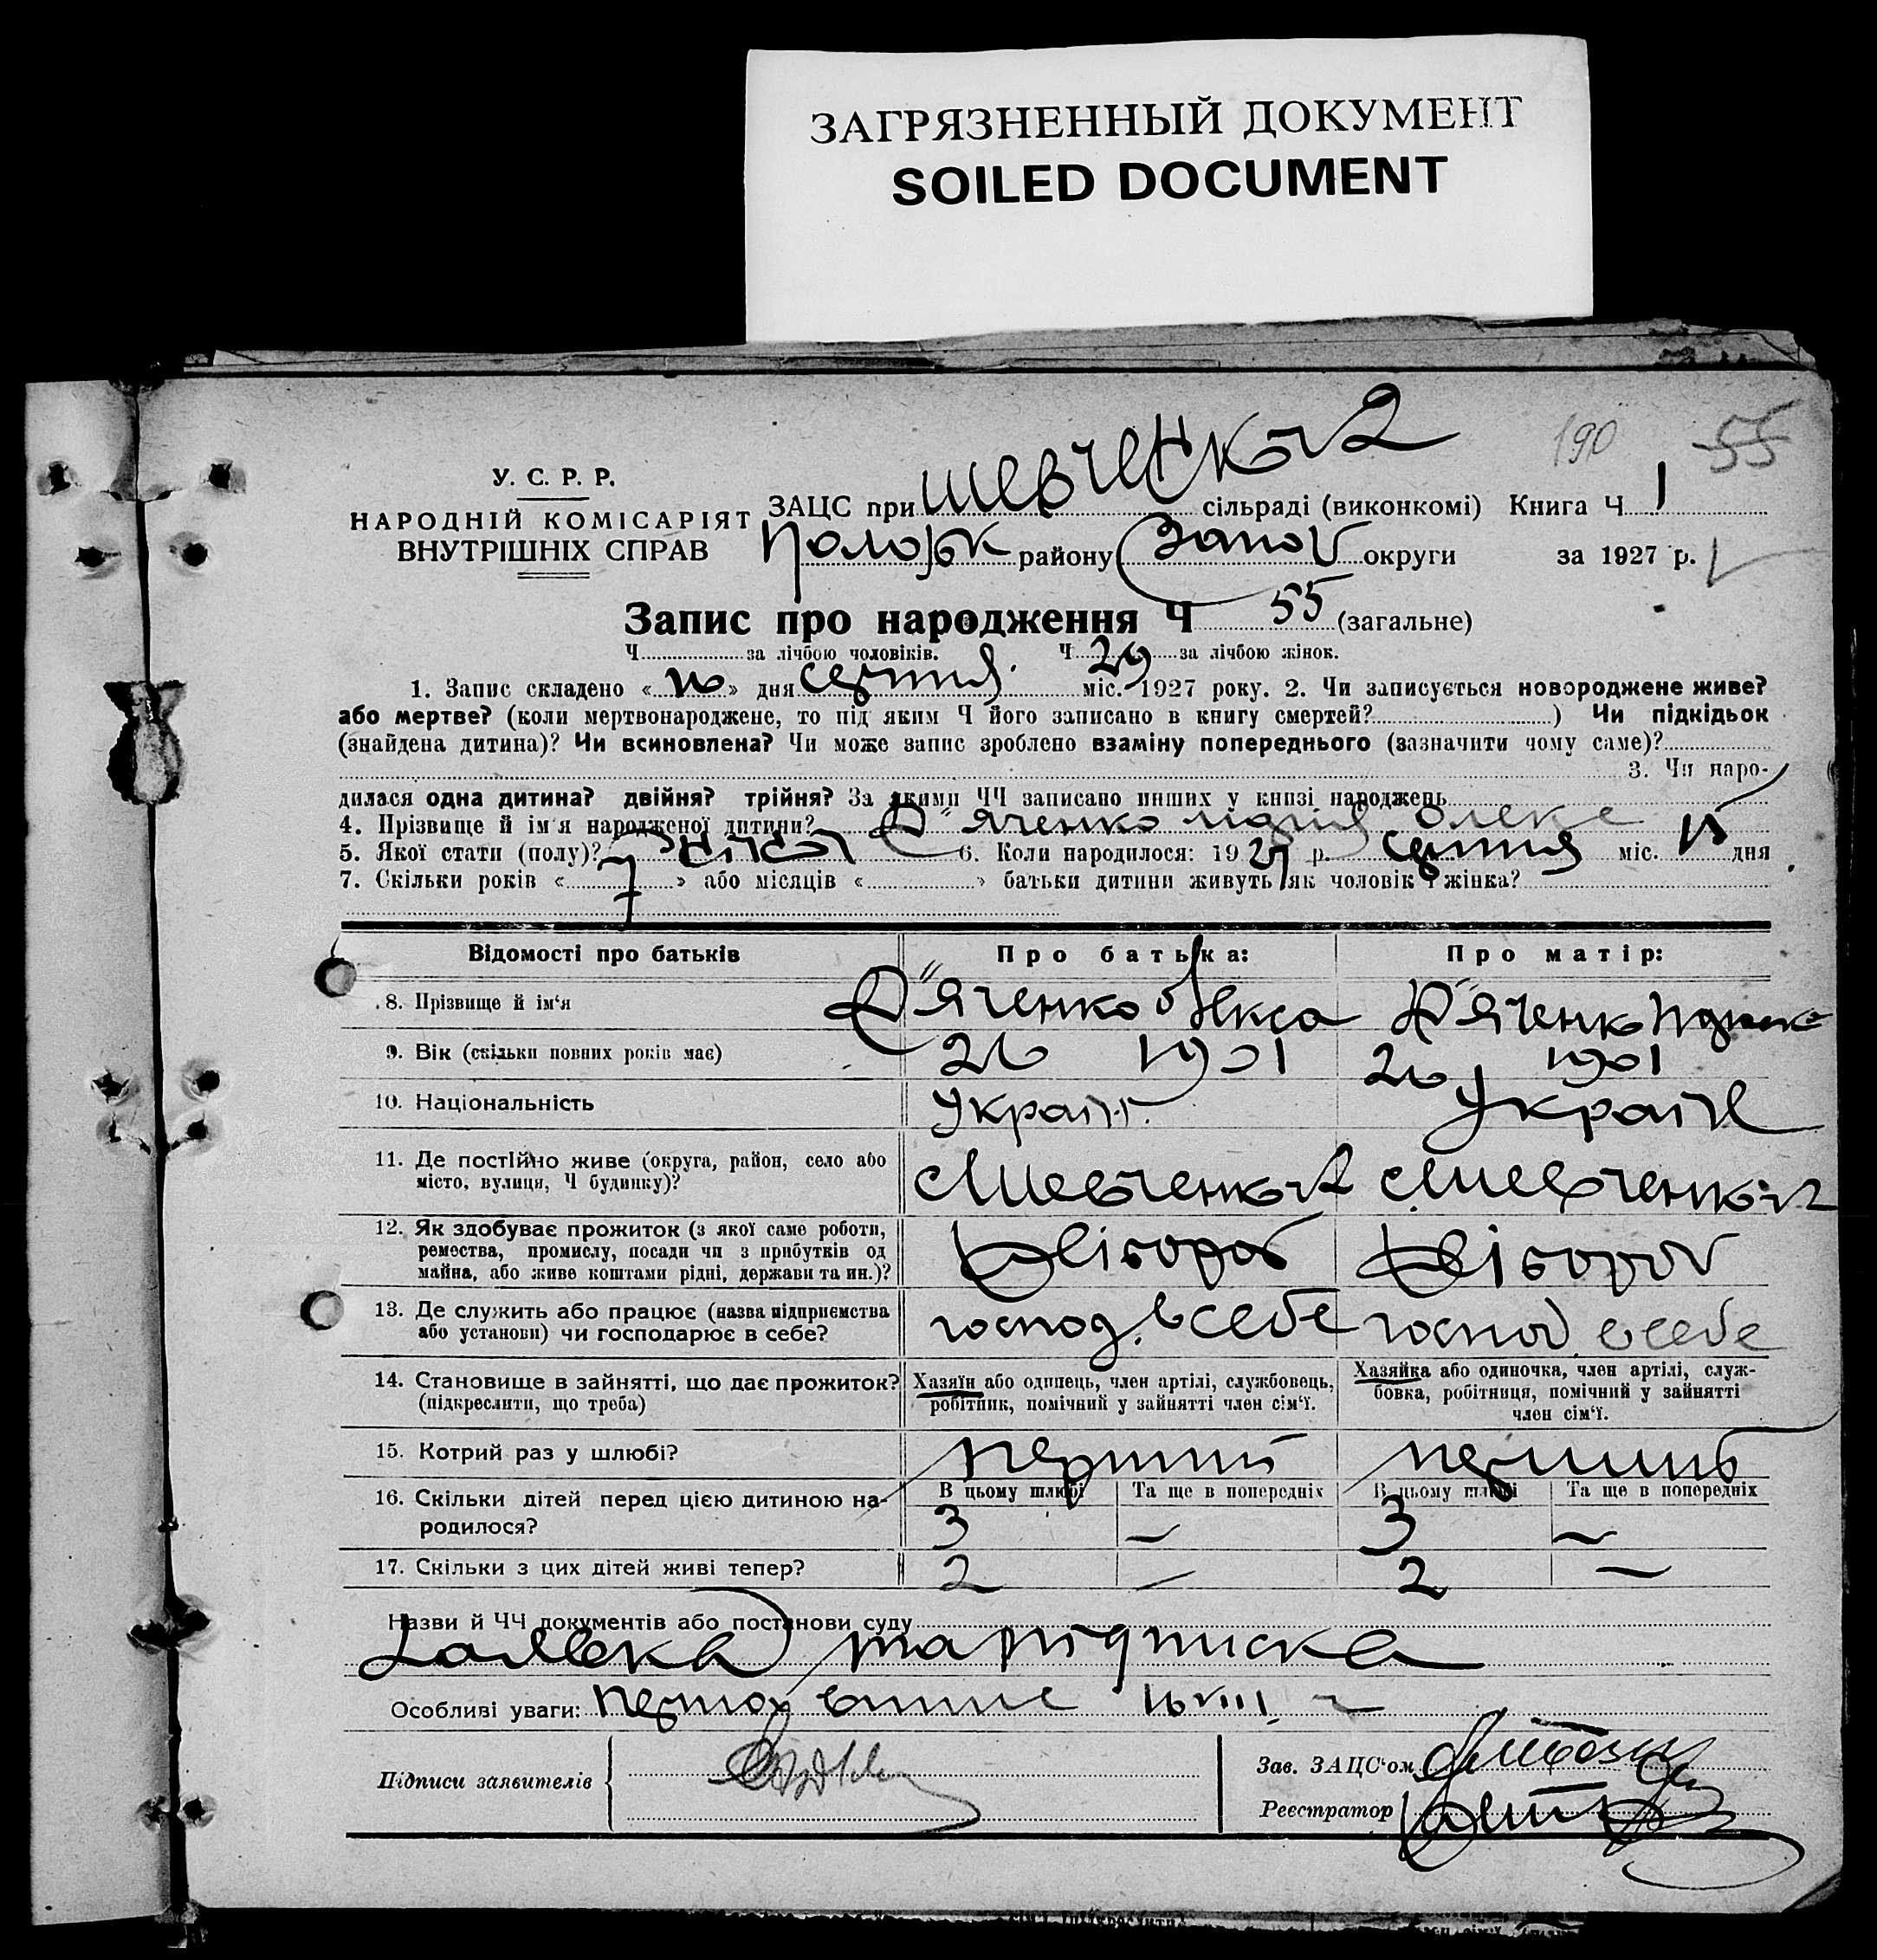 ЗАГРЯЗНЕННЫЙ ДОКУМЕНТ
SOILED DOCUMENT
190 55
У. С. Р. Р.
НАРОДНІЙ КОМІСАРІЯТ
ВНУТРІШНІХ СПРАВ
ЗАЦС при сільраді (виконкомі) Книга Ч 1
району Запоў округи за 1927 р.
Запис про народження Ч 55 (загальне)
Ч за лічбою чоловіків. Ч 29 за лічбою жінок.
1. Запис складено « 16 » дня серпня міс. 1927 року. 2. Чи записується новороджене живе?
або мертве? (коли мертвонароджене, то під яким Ч його записано в книгу смертей? ) Чи підкідьок
(знайдена дитина)? Чи всиновлена? Чи може запис зроблено взаміну попереднього (зазначити чому саме)?
3. Чи наро-
дилася одна дитина? двійня? трійня? За якими ЧЧ записано инших у книзі народжень
4. Прізвище й ім'я народженої дитини? Д"яченко Лідія Олекс
5. Якої стати (полу)? жіноч 6. Коли народилося: 1927 р. серпня міс. 15 дня
7. Скільки років « 7 » або місяців « » батьки дитини живуть як чоловік і жінка?
Відомості про батьків Про батька: Про матір:
8. Прізвище й ім'я Д"яченко Олекса Д"яченко
9. Вік (скільки повних років має) 26 1901 26 1901
10. Національність Україн. Україн
11. Де постійно живе (округа, район, село або
місто, вулиця, Ч будинку)?
12. Як здобуває прожиток (з якої саме роботи,
ремества, промислу, посади чи з прибутків од
майна, або живе коштами рідні, держави та ин.)?
Хлібороб Хлібороб
13. Де служить або працює (назва підприємства
або установи) чи господарює в себе?
господ. в себе господ. в себе
14. Становище в зайнятті, що дає прожиток?
(підкреслити, що треба)
Хазяїн або одинець, член артілі, службовець,
робітник, помічний у зайнятті член сім'ї.
Хазяйка або одиночка, член артілі, служ-
бовка, робітниця, помічний у зайнятті
член сім'ї.
15. Котрий раз у шлюбі? перший перший
16. Скільки дітей перед цією дитиною на-
родилося?
В цьому шлюбі Та ще в попередніх В цьому шлюбі Та ще в попередніх
3 — 3 —
17. Скільки з цих дітей живі тепер? 2 — 2 —
Назви й ЧЧ документів або постанови суду
та підписка
Особливі уваги: 16 VIII
Підписи заявителів
Зав. ЗАЦС'ом
Реєстратор